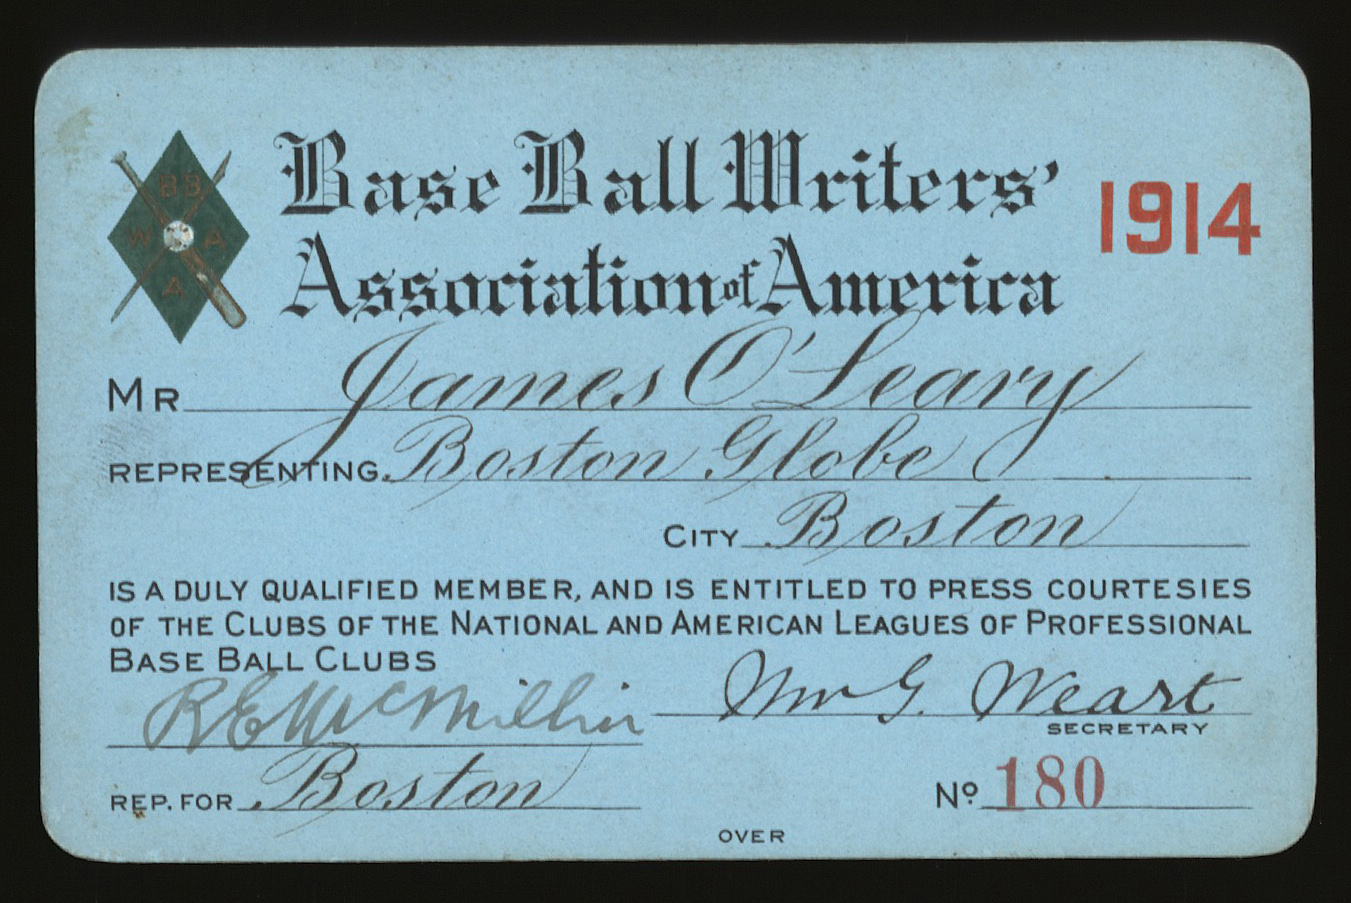 BB
W A
A
Base Ball Writers'
Association of America
1914
Mr James O'Leary
REPRESENTING Boston Globe
CITY Boston
IS A DULY QUALIFIED MEMBER, AND IS ENTITLED TO PRESS COURTESIES
OF THE CLUBS OF THE NATIONAL AND AMERICAN LEAGUES OF PROFESSIONAL
BASE BALL CLUBS
R E McMillin
Wm G. Weart
SECRETARY
REP. FOR Boston
No 180
OVER